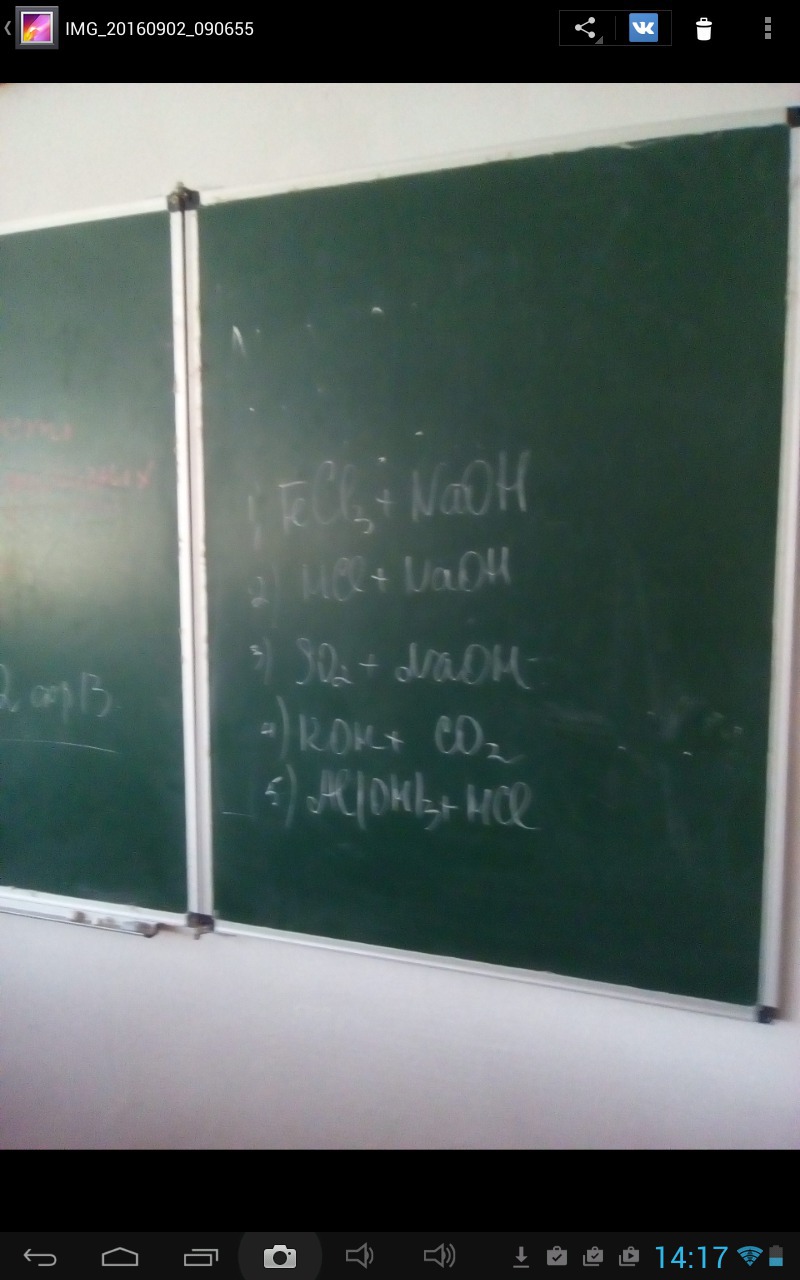 IMG_20160902_090655
1) FeCl3 + NaOH
2) HCl + NaOH
3) SO2 + NaOH
4) KOH + CO2
5) Al(OH)3 + HCl
14:17